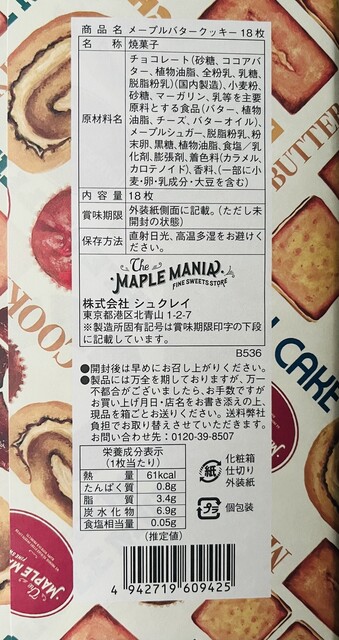 商品名 メープルバタークッキー18枚
名称 焼菓子
原材料名 チョコレート(砂糖、ココアバ
ター、植物油脂、全粉乳、乳糖、
脱脂粉乳)(国内製造)、小麦粉、
砂糖、マーガリン、乳等を主要
原料とする食品(バター、植物
油脂、チーズ、バターオイル)、
メープルシュガー、脱脂粉乳、粉
末卵、黒糖、植物油脂、食塩/乳
化剤、膨張剤、着色料(カラメル、
カロテノイド)、香料、(一部に小
麦・卵・乳成分・大豆を含む)
内容量 18枚
賞味期限 外装紙側面に記載。(ただし未
開封の状態)
保存方法 直射日光、高温多湿をお避けく
ださい。
The
MAPLE MANIA
FINE SWEETS STORE
株式会社 シュクレイ
東京都港区北青山1-2-7
※製造所固有記号は賞味期限印字の下段
に記載しています。
B536
●開封後は早めにお召し上がりください。
●製品には万全を期しておりますが、万一
不都合がございましたら、お手数ですが
お買い上げ月日・店名をお書き添えの上、
現品を箱ごとお送りください。送料弊社
負担でお取り替えさせていただきます。
お問い合わせ先:0120-39-8507
栄養成分表示
(1枚当たり)
熱量 61kcal
たんぱく質 0.8g
脂質 3.4g
炭水化物 6.9g
食塩相当量 0.05g
(推定値)
紙 化粧箱
仕切り
外装紙
プラ 個包装
4 942719 609425
BUTTER
COOK
CAKE
The
MAPLE MA